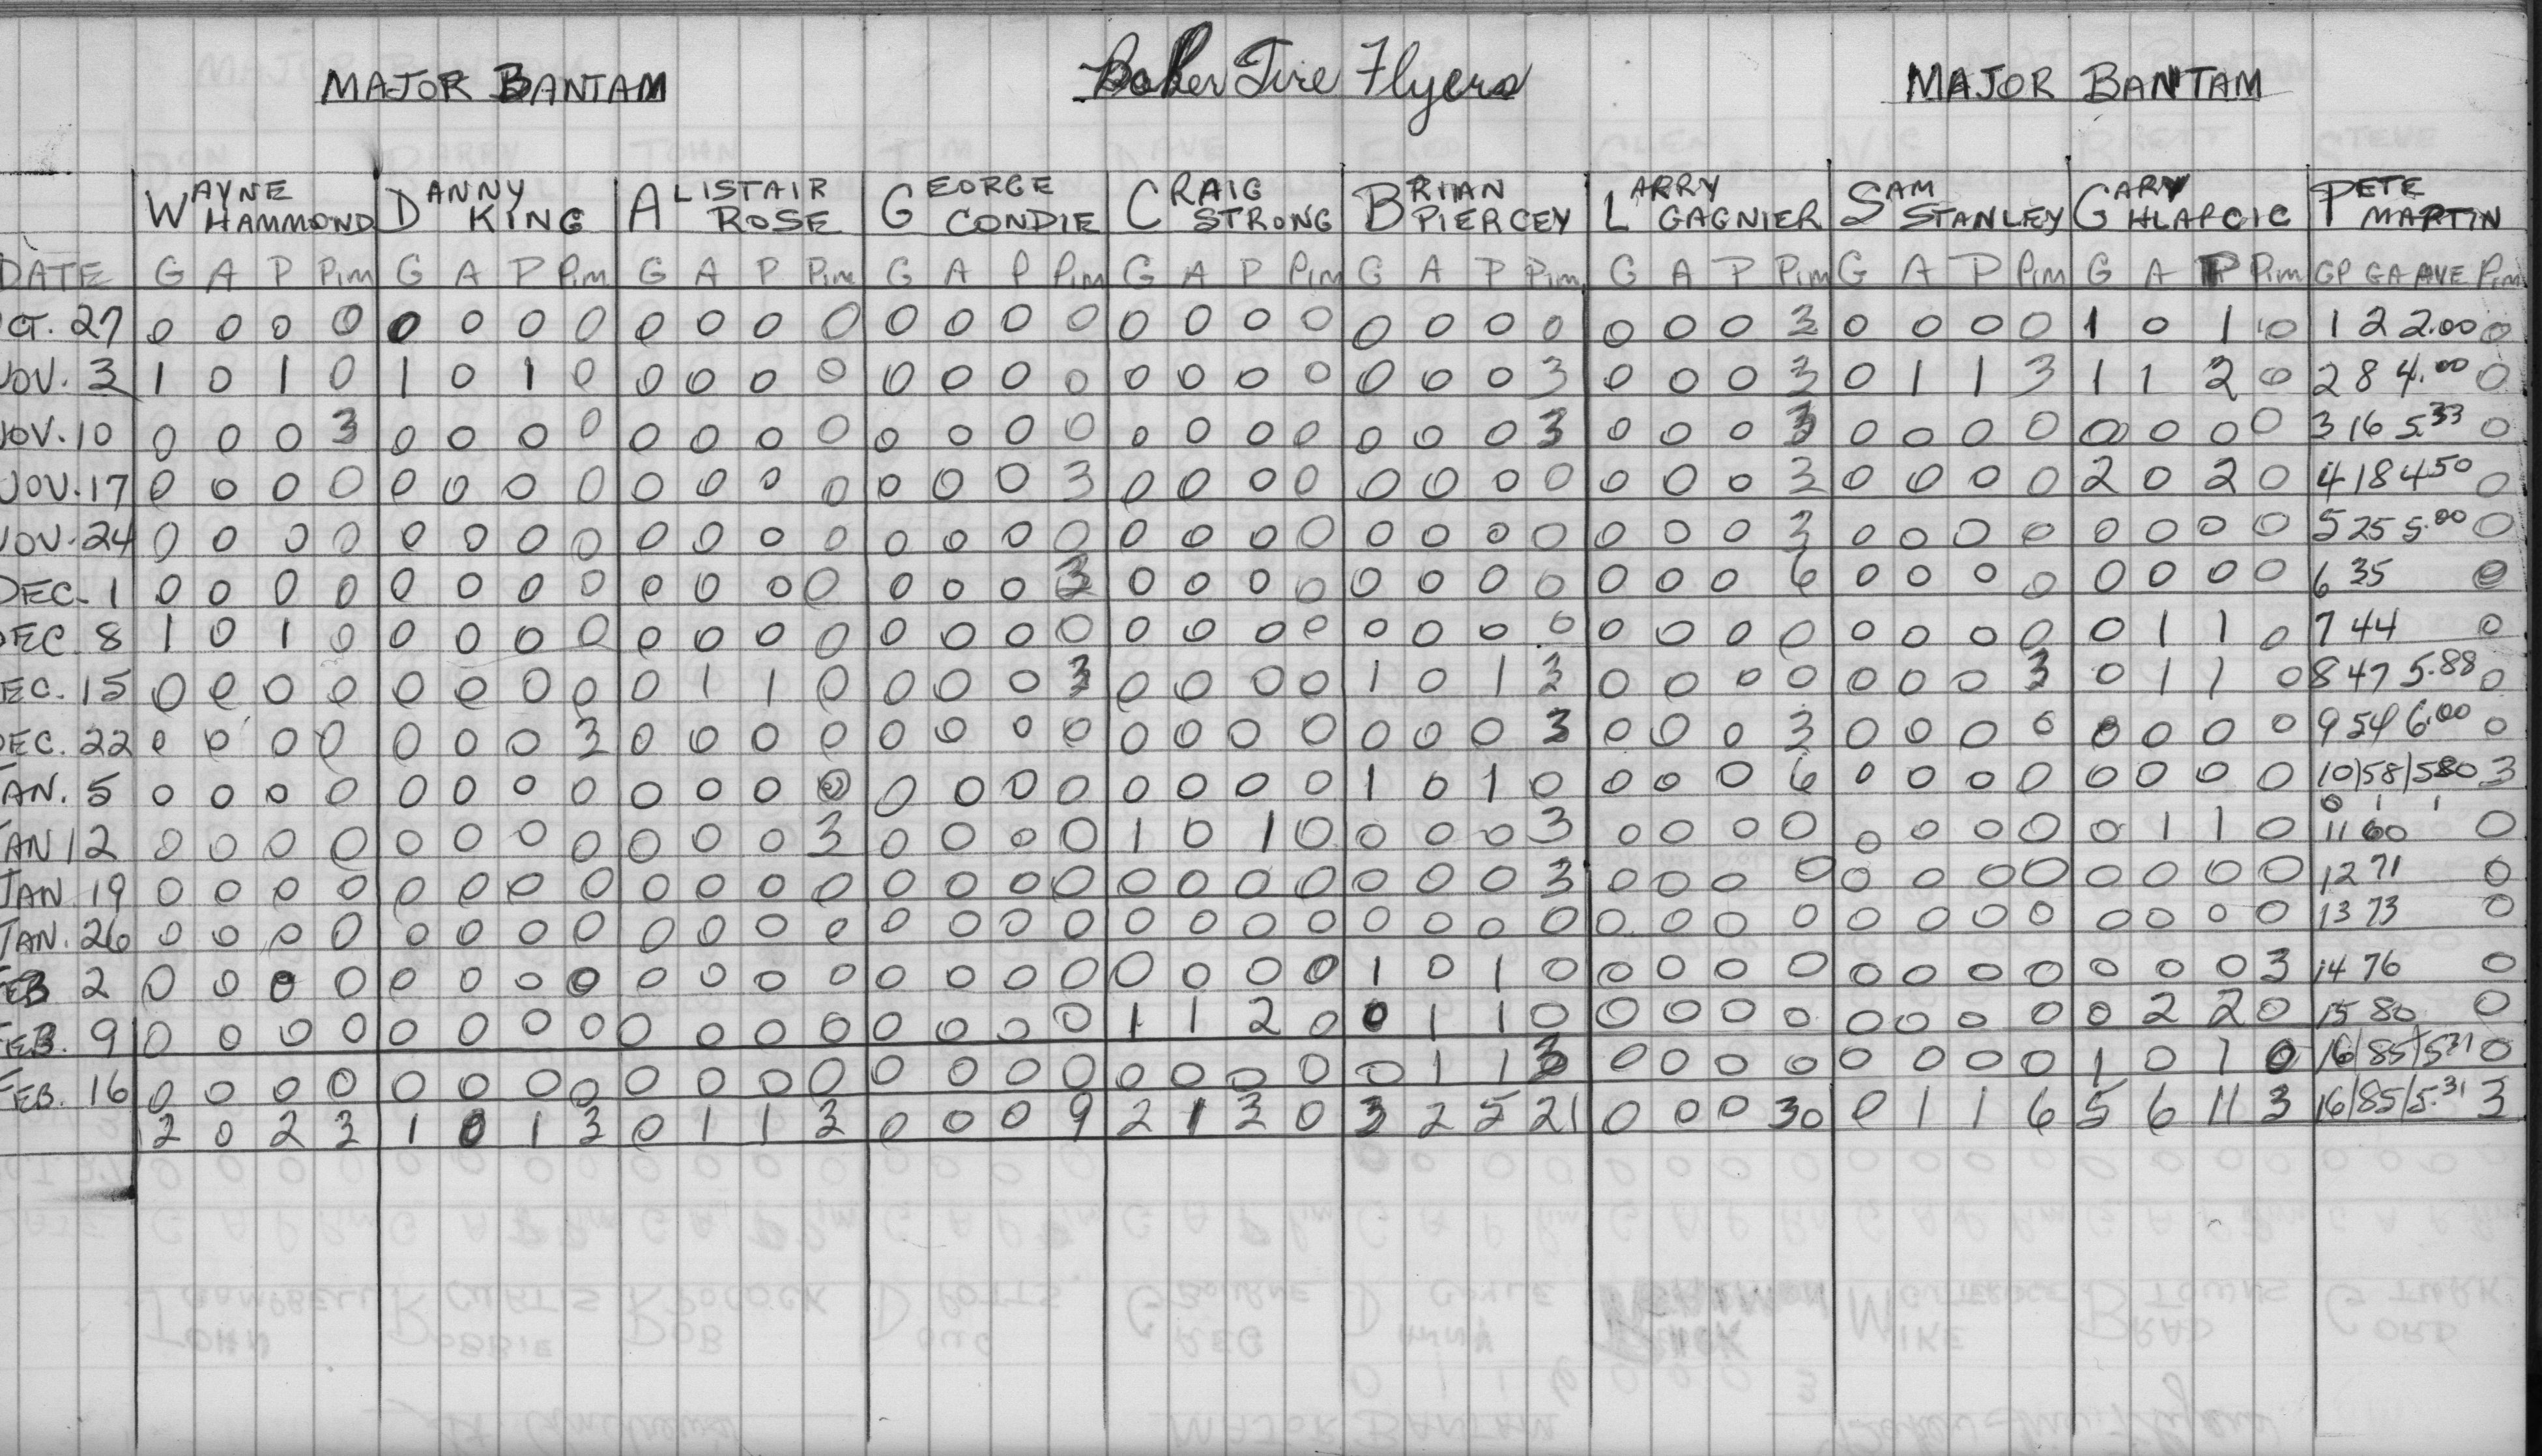 MAJOR BANTAM Baker Tire Flyers MAJOR BANTAM
WAYNE HAMMOND DANNY KING ALISTAIR ROSE GEORGE CONDIE CRAIG STRONG BRIAN PIERCEY LARRY GAGNIER SAM STANLEY GARY HLAPCIC PETE MARTIN
DATE G A P Pim G A P Pim G A P Pim G A P Pim G A P Pim G A P Pim G A P Pim G A P Pim G A P Pim GP GA AVE Pim
CT. 27 0 0 0 0 0 0 0 0 0 0 0 0 0 0 0 0 0 0 0 0 0 0 0 0 0 0 0 3 0 0 0 0 1 0 1 0 1 2 2.00 0
NOV. 3 1 0 1 0 1 0 1 0 0 0 0 0 0 0 0 0 0 0 0 0 0 0 0 3 0 0 0 3 0 1 1 3 1 1 2 0 2 8 4.00 0
NOV. 10 0 0 0 3 0 0 0 0 0 0 0 0 0 0 0 0 0 0 0 0 0 0 0 3 0 0 0 3 0 0 0 0 0 0 0 0 3 16 5.33 0
NOV. 17 0 0 0 0 0 0 0 0 0 0 0 0 0 0 0 3 0 0 0 0 0 0 0 0 0 0 0 3 0 0 0 0 2 0 2 0 4 18 4.50 0
NOV. 24 0 0 0 0 0 0 0 0 0 0 0 0 0 0 0 0 0 0 0 0 0 0 0 0 0 0 0 3 0 0 0 0 0 0 0 0 5 25 5.00 0
DEC. 1 0 0 0 0 0 0 0 0 0 0 0 0 0 0 0 3 0 0 0 0 0 0 0 0 0 0 0 6 0 0 0 0 0 0 0 0 6 35 0
DEC 8 1 0 1 0 0 0 0 0 0 0 0 0 0 0 0 0 0 0 0 0 0 0 0 0 0 0 0 0 0 0 0 0 0 1 1 0 7 44 0
EC. 15 0 0 0 0 0 0 0 0 0 1 1 0 0 0 0 3 0 0 0 0 1 0 1 3 0 0 0 0 0 0 0 3 0 1 1 0 8 47 5.88 0
EC. 22 0 0 0 0 0 0 0 3 0 0 0 0 0 0 0 0 0 0 0 0 0 0 0 3 0 0 0 3 0 0 0 0 0 0 0 0 9 54 6.00 0
JAN. 5 0 0 0 0 0 0 0 0 0 0 0 0 0 0 0 0 0 0 0 0 1 0 1 0 0 0 0 6 0 0 0 0 0 0 0 0 10/58/5.80 3
0 1 1
JAN 12 0 0 0 0 0 0 0 0 0 0 0 3 0 0 0 0 1 0 1 0 0 0 0 3 0 0 0 0 0 0 0 0 0 1 1 0 11 60 0
JAN 19 0 0 0 0 0 0 0 0 0 0 0 0 0 0 0 0 0 0 0 0 0 0 0 3 0 0 0 0 0 0 0 0 0 0 0 0 12 71 0
JAN. 26 0 0 0 0 0 0 0 0 0 0 0 0 0 0 0 0 0 0 0 0 0 0 0 0 0 0 0 0 0 0 0 0 0 0 0 0 13 73 0
FEB 2 0 0 0 0 0 0 0 0 0 0 0 0 0 0 0 0 0 0 0 0 1 0 1 0 0 0 0 0 0 0 0 0 0 0 0 3 14 76 0
FEB. 9 0 0 0 0 0 0 0 0 0 0 0 0 0 0 0 0 1 1 2 0 0 1 1 0 0 0 0 0 0 0 0 0 0 2 2 0 15 80 0
FEB. 16 0 0 0 0 0 0 0 0 0 0 0 0 0 0 0 0 0 0 0 0 0 1 1 3 0 0 0 0 0 0 0 0 1 0 1 0 16/85/5.31 0
2 0 2 3 1 0 1 3 0 1 1 3 0 0 0 9 2 1 3 0 3 2 5 21 0 0 0 30 0 1 1 6 5 6 11 3 16/85/5.31 3